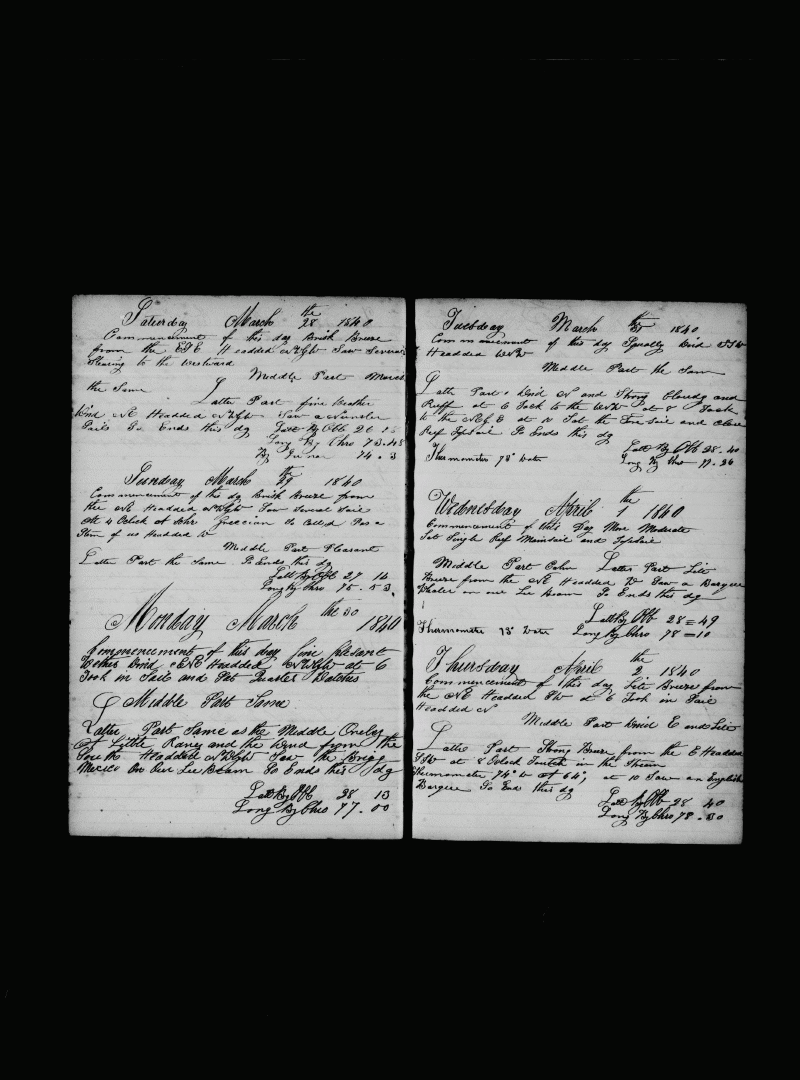 Saturday March 28 the 1840
Commencement of this day Brisk Breeze
from the ESE Headded NWbW Saw Several
Stearing to the Westward
Middle Part Much
the Same
Latter Part fine Weather
Wind NE Headded NWbW Saw a Number
Sails So Ends this dg Latt By Obb 26 15
Long By Chro 73.48
By 74.3
Sunday March 29 th 1840
Commencement of this dg Brisk Breeze from
the NE Headded NWbW Saw Several Sail
At 4 Oclock at Ship Grecian
Stern of us Headded W
Middle Part Pleasant
Latter Part the Same So Ends this dg
Latt By Obb 27 14
Long By Chro 75.53
Monday March the 30 1840
Commencement of this day fine plesant
Wether Wind ENE Headded NWbW at 6
Took in Sail and Set Quarter Watches
Middle Part Same
Latter Part Same as the Middle Oneley
A Little Raney and the Wind from the
South Headded NWbW Saw the Brig
Mexico On Our Lee Beam So Ends this dg
Latt By Obb 28 13
Long By Chro 77.00
Tuesday March th 31 1840
Commencement of this day Squally Wind SSW
Headded WNW
Middle Part the Same
Latter Part Wind N and Strong Cloudy and
at 6 Tack to the WNW at 8 Tack
to the NEbE at 10 the Fore Sail and Close
Reef Topsail So Ends this dg
Latt By Obb 28.40
Thermometer 73° Water Long By Chro 77.26
Wednesday April 1 the 1840
Commencement of this Day More Moderate
Set Single Reef Mainsail and Topsail
Middle Part Calm Latter Part Lite
Breeze from the NE Headded W Saw a Barque
Whaler on our Lee Beam So Ends this dg
Latt By Obb 28=49
Thermometer 73° Water Long By Chro 78=10
Thursday April 2 the 1840
Commencement of this day Lite Breeze from
the NE Headded at 6 Took in Sail
Headded N
Middle Part Wind E and Lite
Latter Part Strong Breeze from the E Headded
SSW at 8 Oclock in the Stream
Thermometer 74° W at 64°, at 10 Saw an English
Barque So End this dg
Latt By Obb 28 40
Long By Chro 78.30